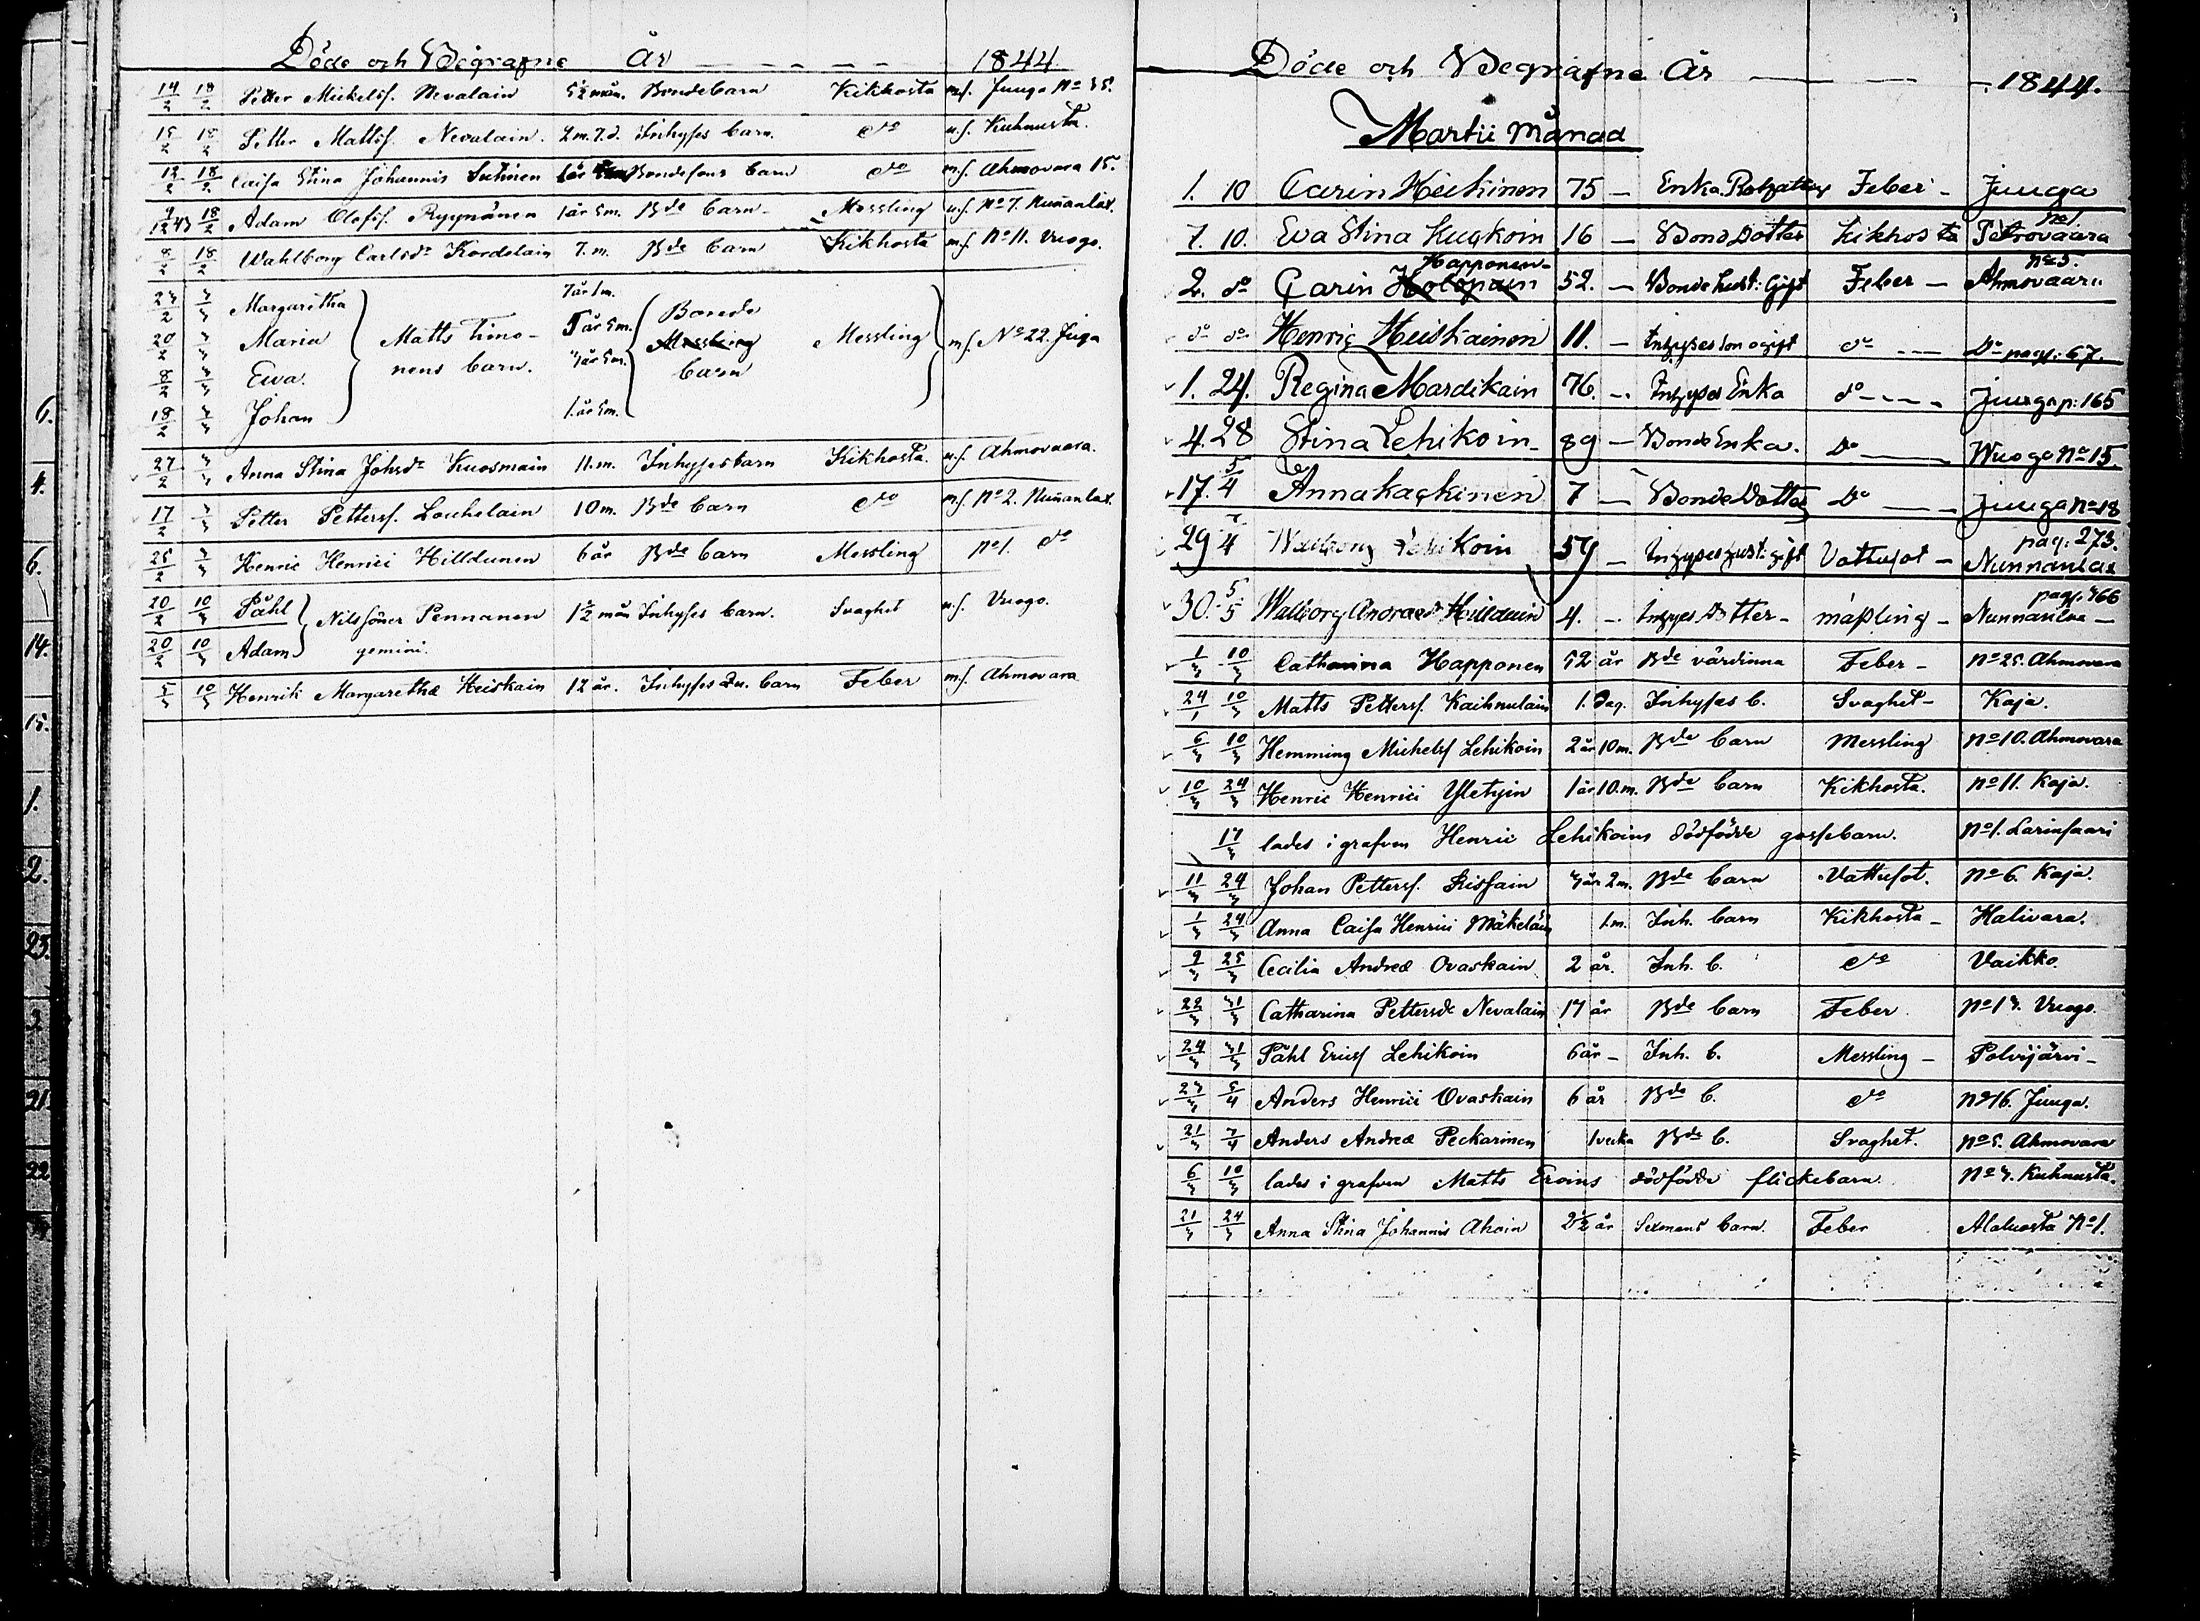 Döde och Begrafne År - - - - - 1844
14/2 18/2 Petter Mickelss. Nevalain 5½ mån. Bondebarn Kikhosta m.f. Juuga No 35.
15/2 18/2 Petter Mattss. Nevalain. 2 m. 7. d. Inhyses barn. do u.f. Kuhnusta.
12/2 18/2 Caisa Stina Johannis Sutinen 1 år Bondesons barn do m.f. Ahmovara 15.
9/12 43 18/2 Adam Olofss. Ryynänen 1 år 5 m. Bde barn Messling u.f. No 7. Nunanlax.
8/2 18/2 Wahlborg Carlsdr Kordelain 7. m. Bde barn Kikhosta m.f. No 11. Vuogo.
23/2 3/3 Margaretha 7 år 1 m.
20/2 3/3 Maria Matts Timo- 5 år 5 m. Bonde Messling Messling m.f. No 22. Juga
8/2 3/3 Ewa. nens barn. 3 år 5 m. barn
18/2 3/3 Johan 1. år 5 m.
27/2 3/3 Anna Stina Johsdr Kuosmain 11. m. Inhyses barn Kikhosta. u.f. Ahmovaara.
17/2 3/3 Petter Petterss. Louhelain 10 m. Bde barn do m.f. No 2. Nunanlax.
25/2 3/3 Henric Henrici Hilldunen 6 år Bde barn Messling No 1. do
20/2 10/3 Påhl Nilssöner Pennanen 1½ mån Inhyses barn. Svaghet u.f. Vuogo.
20/2 10/3 Adam gemini.
5/3 10/3 Henrik Margarethæ Heiskain 12 år. Inhyses Qu. barn Feber m.f. Ahmovara
6.
4.
6.
14.
15.
1.
2.
23.
3
21.
22
Döde och Begrafne År - - - 1844.
Martii Månad
1. 10 Carin Heikinen 75 - Enka Feber - Juuga
7. 10. Eva Stina Kuckoin 16 - Bond Dotter Kikhosta No 1. Petrovaara
2. do Carin Holopain Happonen 52. - Bonde hust: Gift Feber - No 5. Ahmovaara
do do Henric Heiskainen 11. - Inhyses son ogift do - - Do pag: 67.
1. 24. Regina Mardikain 76. - Inhyses Enka do - - - Juuga p: 165
4. 28 Stina Lehikoin 89 - Bonde Enka. Do - Wuogo No 15.
17. 5/4 Anna Kackinen 7 - Bonde Dotter Do - Juuga No 18
29 7/4 Walborg Lehikoin 59 - Inhyses hust: gift Vattusot - pag: 273. Nunnanlax
30. 5/5 Walborg Andraedr Hilduin 4. - Inhyses Dotter - mäßling - pag. 466 Nunnanlax -
1/3 10/3 Catharina Happonen 52 år Bde värdinna Feber - No 25. Ahmovara
24/1 10/3 Matts Petterss. Kaihnulain 1. dag. Inhyses b. Svaghet - Kaja.
6/3 10/3 Hemming Michelss Lehikoin 2 år 10 m. Bde barn Messling No 10. Ahmovara
10/3 24/3 Henric Henrici Yletyin 1 år 10. m. Bde barn Kikhosta. No 11. Kaja.
17/3 lades i grafven Henric Lehikoins dödfödde gossebarn. No 1. Larinsaari
11/3 24/3 Johan Petterss. Kissain 3 år 2 m. Bde barn Vattusot. No 6. Kaja.
1/3 24/3 Anna Caisa Henrici Mäkeläin 1. m. Inh. barn Kikhosta - Halivara.
9/3 25/3 Cecilia Andreæ Ovaskain 2 år. Inh. b. do Vaikko.
22/3 31/3 Catharina Pettersdr Nevalain 17 år Bde barn Feber No 13. Vuogo.
24/3 31/3 Påhl Ericss Lehikoin 6 år - Inh. b. Messling - Polvijärvi -
23/3 5/4 Anders Henrici Ovaskain 6 år Bde b. do No 16. Juuga.
21/3 7/4 Anders Andreæ Peckarinen 1 vecka Bde b. Svaghet. No 5. Ahmovara
6/3 10/3 lades i grafven Matts Eroins dödfödde flickebarn No 3. Kuhnusta.
21/3 24/3 Anna Stina Johannis Ahoin 2½ år Sexmans barn. Feber Alaluosta No 1.